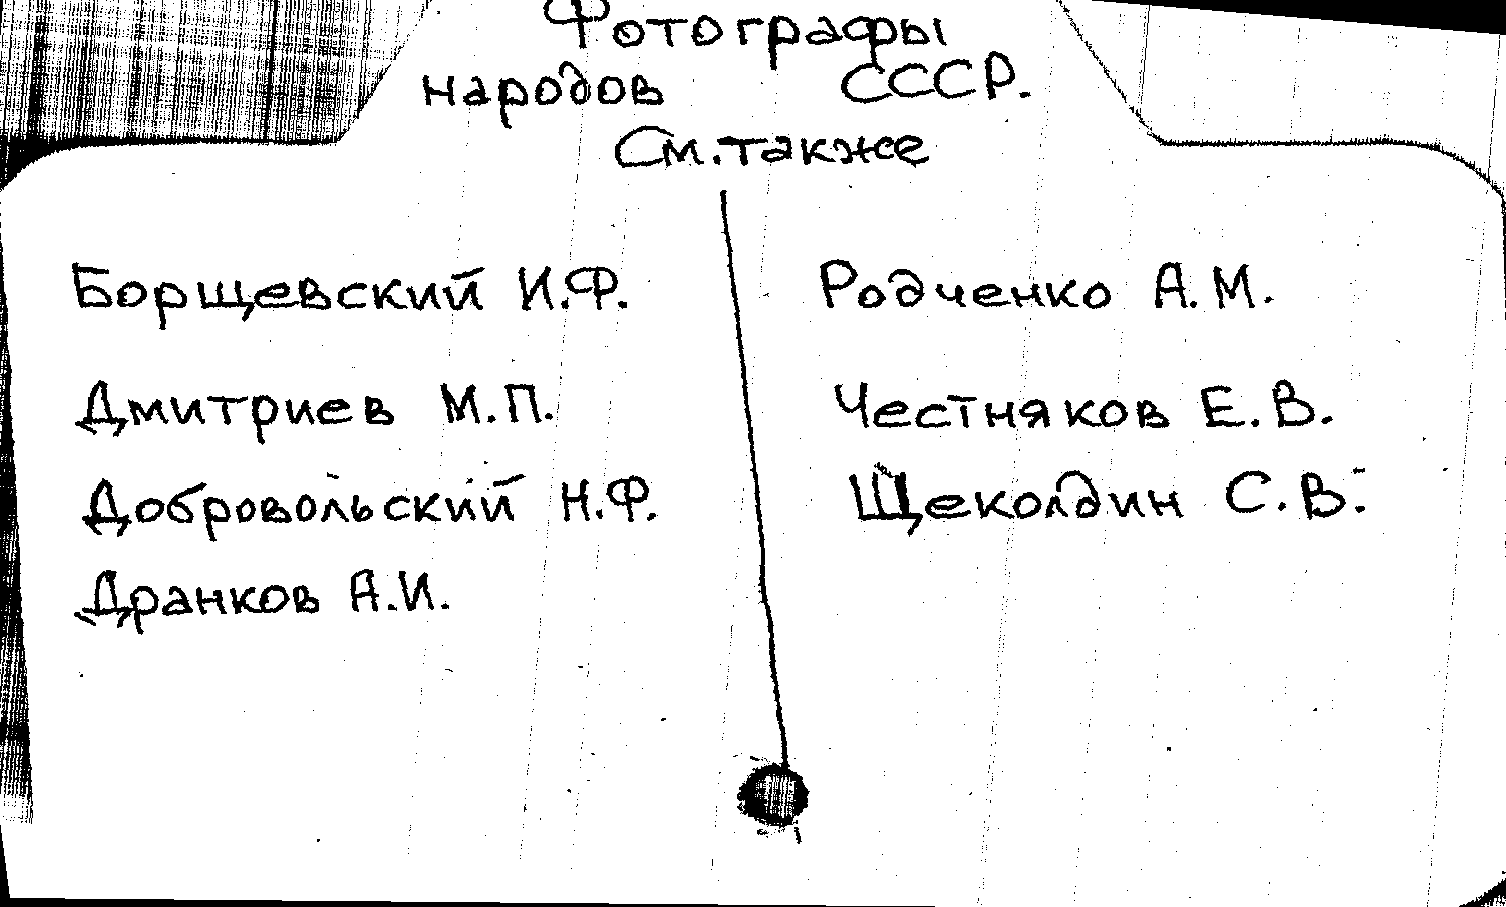 Фотографы
народов СССР.
См. также
Борщевский И.Ф.
Дмитриев М.П.
Добровольский Н.Ф.
Дранков А.И.
Родченко А.М.
Честняков Е.В.
Щеколдин С.В.